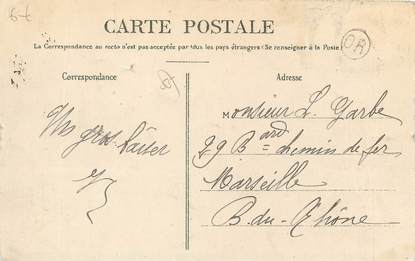 6-6
CARTE POSTALE
La Correspondance au recto n'est pas acceptée par tous les pays étrangers (Se renseigner à la Poste)
OR
Correspondance
Adresse
Un gros baiser
Monsieur L. Garbe
29 Bard chemin de fer
Marseille
B. du-Rhône